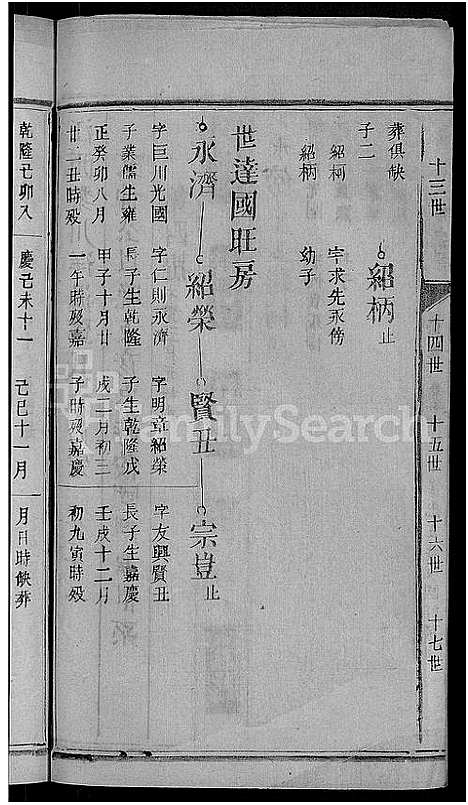 十三世 十四世 十五世 十六世 十七世
葬俱缺
子二
紹柄止
紹柯 字求先永傍
紹柄 幼子
世達國旺房
永濟 紹榮 賢丑 宗豈止
字巨川光國 字仁則永濟 字明章紹榮 字友興賢丑
子業儒生雍 長子生乾隆 子生乾隆戊 長子生嘉慶
正癸卯八月 甲子十月日 戌二月初三 壬戌十二月
廿二丑時殁 一午時殁嘉 子時殁嘉慶 初九寅時殁
乾隆己卯八 慶己未十一 己巳十一月 月日時缺葬
FamilySearch